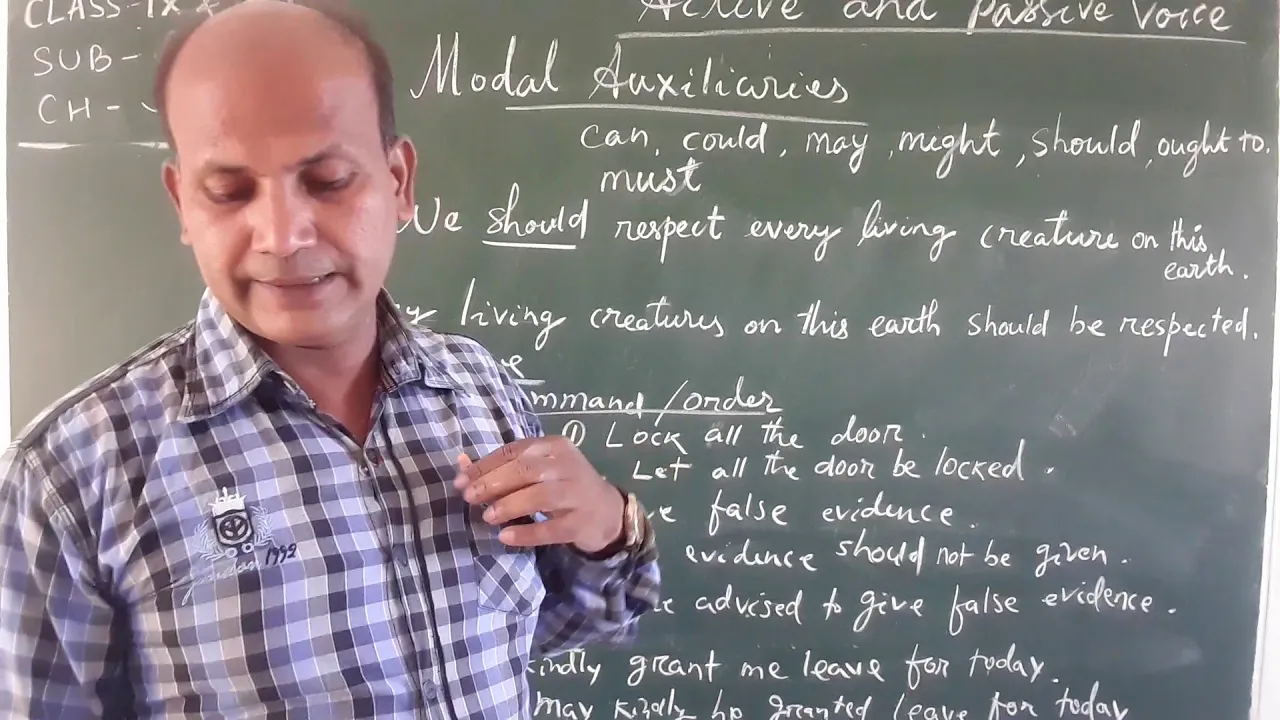 CLASS-IX &
Active and Passive Voice
SUB-
CH-
Modal Auxiliaries
can, could, may, might, should, ought to.
must
We should respect every living creature on this
earth.
living creatures on this earth should be respected.
mmand/order
① Lock all the door.
Let all the door be locked.
false evidence.
evidence should not be given.
advised to give false evidence.
kindly grant me leave for today.
may kindly be granted leave for today
1992